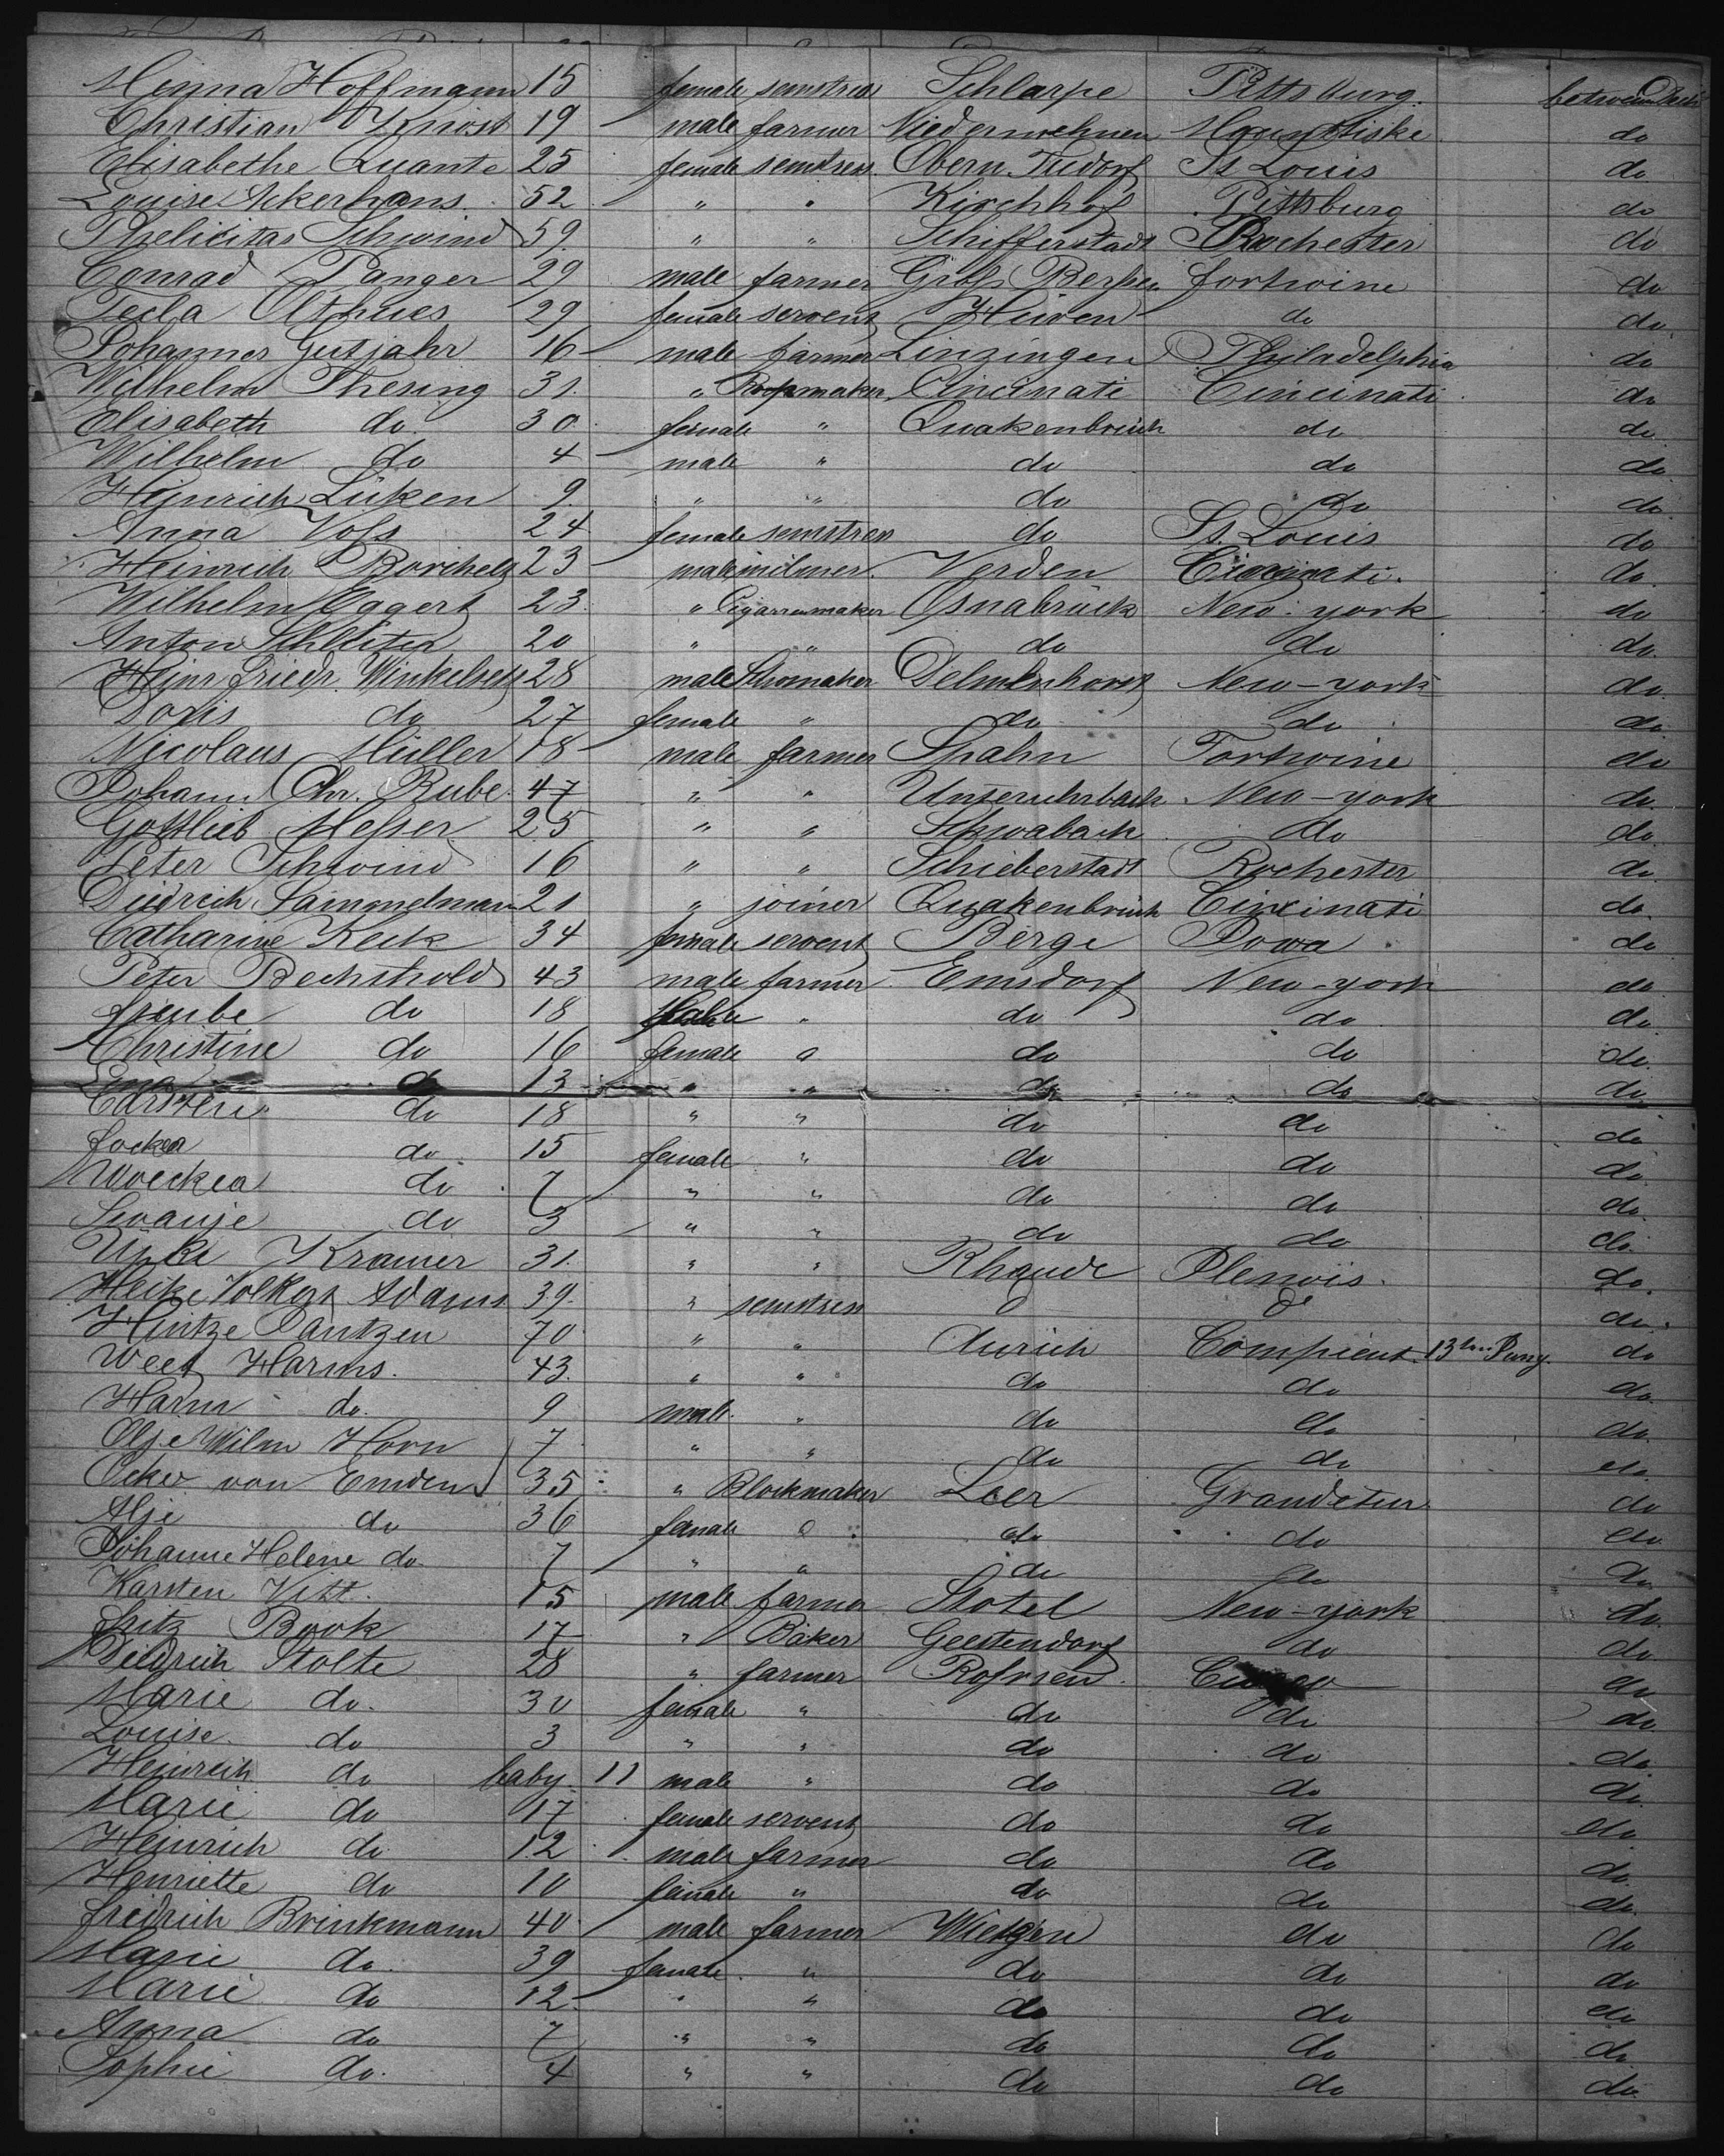 Menna Hoffmann 15 female semstress Schlarpe Pittsburg. between Deck
Christian Knost 19 male farmer Niedermehnen do
Elisabethe Quante 25 female semstress Obern. Tudorf St Louis do
Louise Ackerhans. 52 " " Kirchhof Pittsburg do
Phelicitas Schwind 59. " " Schifferstadt Rochester do
Conrad Panger 29 male farmer Grofs Berssen fortwine do
Tecla Althues 29 female servent Hüven do do.
Johannes Gutjahr 16 male farmer Linzingen Philadelphia do
Wilhelm Thesing 31. " Cincinati Cincinati do
Elisabeth do. 30 female " Quakenbrück do do.
Wilhelm do 4 male " do do do
Heinrich Lüken 9. " " do do do
Anna Vofs 24 female semstress do St. Louis do
Heinrich Borchelz 23 male milner. Verden Cincinati. do.
Wilhelm Eggert 23. " Cigarrenmaker Osnabrück New-york do
Anton Schleiter 20 " " do do do.
Heinr. Friedr. Winkelsetz 28 male Shomaker Delmenhorst New-york do.
Doris do 27 female " do do do.
Nicolaus Müller 18 male farmer Spahn Fortwine do
Johann Chr. Rube. 47 " " New-york do.
Gottlieb Mefser 25 " " Schwabach do do.
Peter Schwind 16 " " Schieberstadt Rochester do
Diedrich Sammelmann 21 " joiner Quakenbrück Cincinati do.
Catharine Keck 34 female servent Berge Iowa do
Peter Bechthold 43 male farmer Emsdorf New-york do
do 18 " do do do.
Christine do 16 female " do do do.
Lena do 13 " " do do do
Carsten do 18 " " do do do
Focken do 15 female " do do do.
Woeckea do 7 " " do do do.
Swanje do 3 " " do do do.
Kramer 31. " " Rhaude Illenois. do.
Heike Volkers Adams 39. " semstress do do do.
Hintze Jantzen 70 " " Aurich do
Weet Harms. 43. " " do do do.
Harm do. 9 male. " do do do.
Olje Wilm Horn 7 " " do do do.
Ocke von Emden 35 " Blockmaker Leer do
Alje do 36 female " do do do
Johanne Helene do 7 " " do do do.
Karsten Vitt. 15 male farmer Stotel New-york do.
Fritz Book 17 " Baker Geestendorf do do.
Diedrich Stolte 28 " farmer do
Marie do. 30 female " do do do.
Louise. do 3 " " do do do.
Heinrich do baby. 11 male " do do do.
Marie do 17 female servent do do do
Heinrich do 12 male farmer do do do.
Henriette do 10 female " do do do.
Fredrich Brinkmann 40 male farmer Wietzen do do
Marie do. 39 female. " do do do
Marie do 12 " " do do do
Anna do 7 " " do do do.
Sophie do. 4 " " do do do.